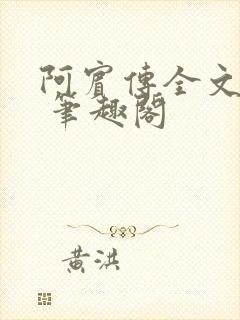 阿賓傳全文
筆趣閣
黄洪